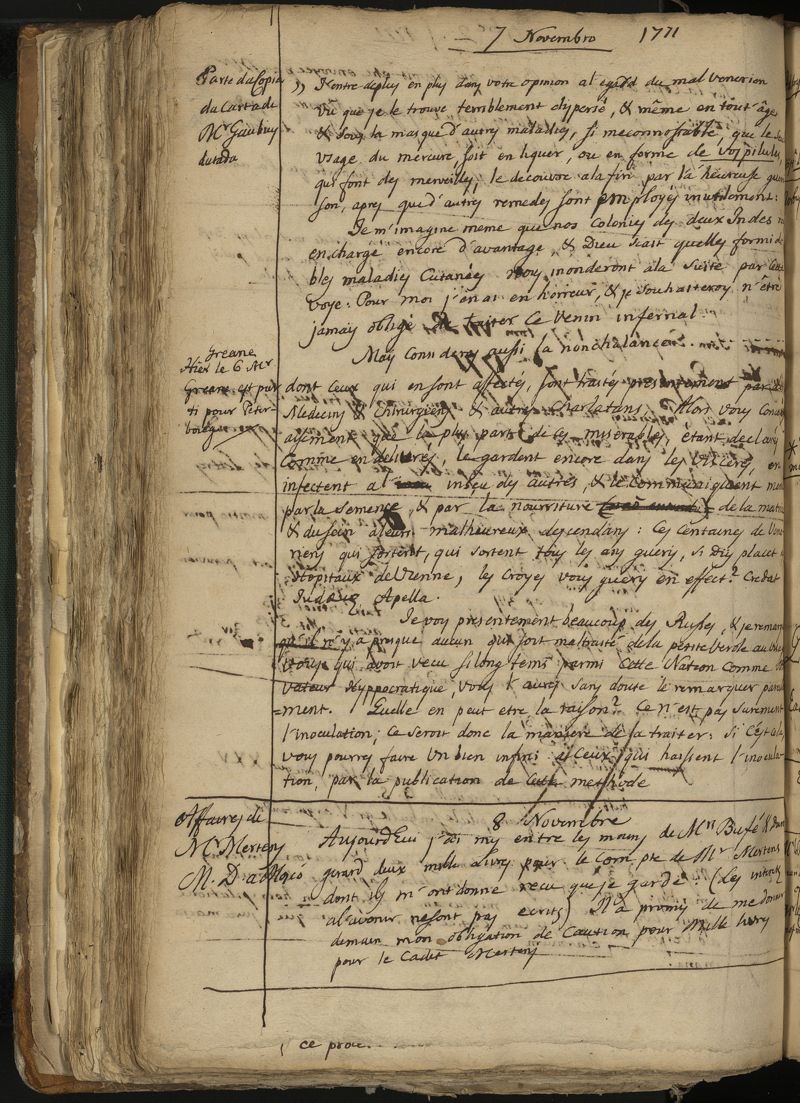 7 Novembro 1771
Parte da Copia
da Carta de
Mr Gaubuy
dutada
" N'entre deplus en plus dans votre opinion al egard du mal venerien
vû que je le trouve terriblement dispersé, & même en tout âge
& sous la masque d'autres maladies, si meconnoisable, que le
usage du mercure, soit en liquer, ou en forme de vos pilules,
qui font des merveilles, le decouvre a la fin par la heureuse gueri
son, apres que d'autres remedes sont employés inutilement:
Je m'imagine meme que nos Colonies des deux Indes
en charge encore d'avantage, & Dieu scait quelles formida
bles maladies Cutanées nous inonderont à la suite par cette
voye. Pour moi j'en ai en horreur, & je souhaiterois n'etre
jamais obligé de traiter ce venin infernal.
Greane
Hier le 6 Mr
Greane est par
ti pour Peter-
bourgue
Mais considerez aussi la nonchalance
dont ceux qui en sont affectés, sont traités presentement par
Medecins & Chirurgiens & autres Charlatans.
quement que la plus part de ces miserables, étant declarés
Comme en delivrés, le gardent encore dans les viscères, en
infectent a l' insçu des autres, & le communiquent
par la semence, & par la nourriture de la
& du sein a leurs malheureux descendans: Ces Centaines de Vene
riens qui sortent, qui sortent tous les ans gueris, si Diis placet
Hôpitaux de Vienne, les Croyes vous gueris en effect? Credat
Judaeus Apella.
Je voy presentement beaucoup des Russes, & je remar
qu'il n'y a presque aucun qui soit maltraité de la petite verole au
vous qui avoit vecu si long tems parmi Cette Nation comme
vateur Hyppocratique, vous l'aures sans doute le remarquer
=ment. Quelle en peut etre la raison? Ce n'est pas surement
l'inoculation; Ce seroit donc la maniere de la traiter: Si C'est
vous pourres faire un bien infini a Ceux, qui haissent l'inocula-
tion, par la publication de Cette methode
Affaires de
Mr Mertens
M. D. a Mosco
8 Novembre
Aujourd'hui j'ai mis entre les mains de Mrs Bufé &
girard deux mille Livres pour le Compte de Mr Mertens
dont ils m'ont donne recu que je garde. (Les interets
al'avenir ne sont pas ecrits) Il a promis de me donner
demain mon obligation de Caution pour Mille livres
pour le Cadet Mertens
ce prou.